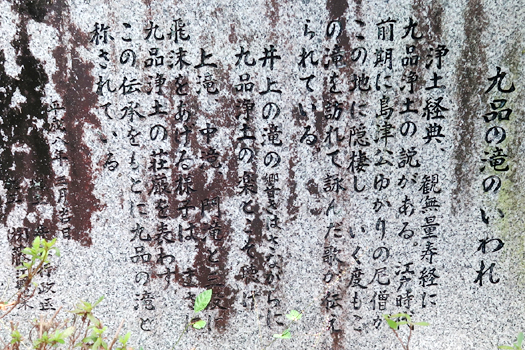 九品の滝のいわれ
浄土経典、観無量寿経に
九品浄土の説がある。江戸時代
前期に島津公ゆかりの尼僧が
この地に隠棲し、いく度もこ
の滝を訪れて詠んだ歌が伝え
られている。
井上の滝の響きはさながらに
九品浄土の楽とこそ聴け
上滝、中滝、阿滝と三段に
飛沫をあげる様子は、まさ
九品浄土の荘厳を表わす
この伝承をもとに九品の滝と
称されている
平成 年 月吉日
行政区